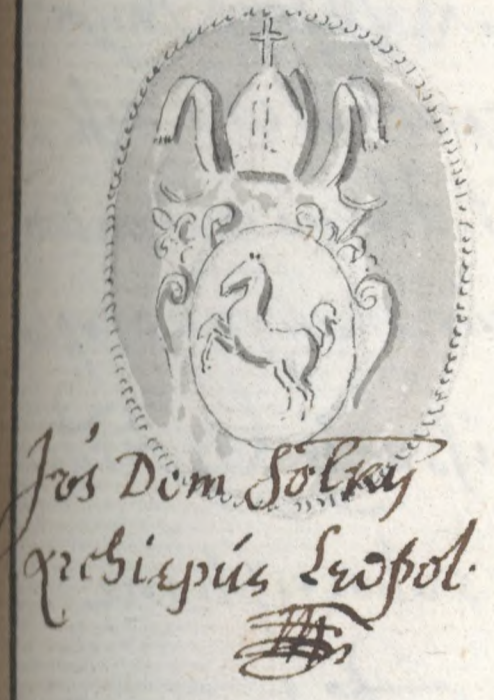 Jós Dem Solky
Archiepús Leopol.